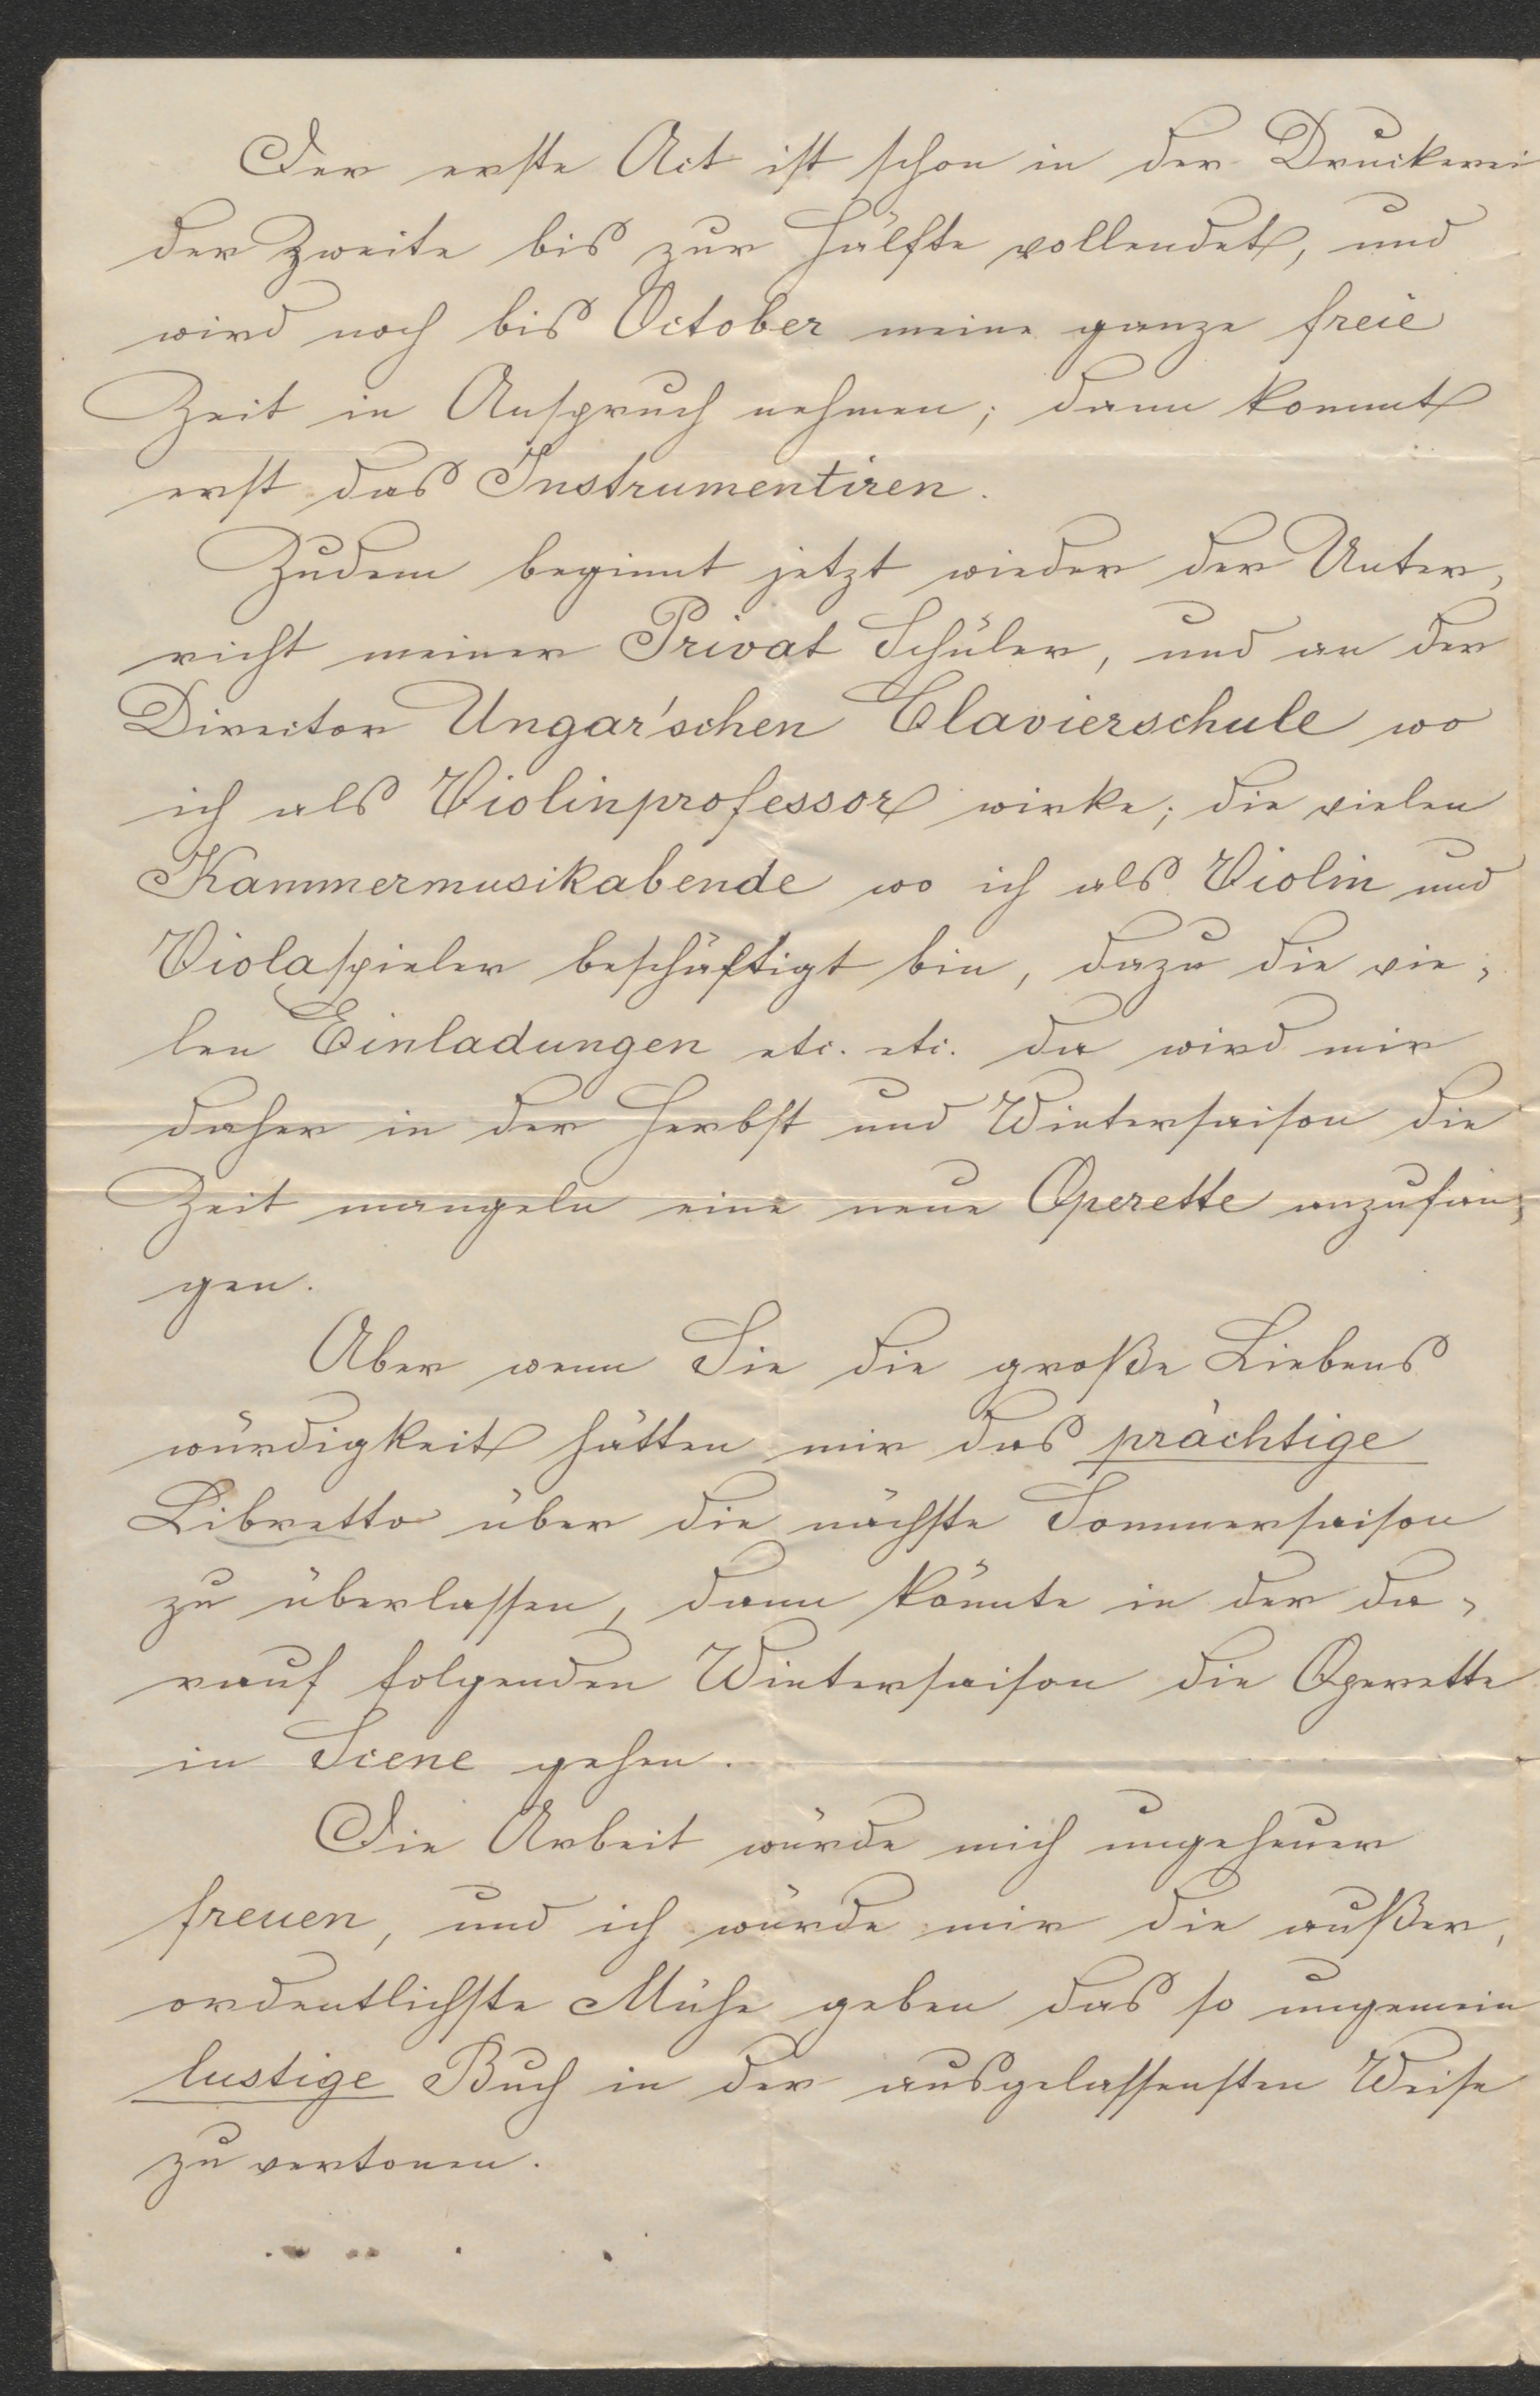 Der erste Act ist schon in der Druckerei
der Zweite bis zur Hälfte vollendet, und
wird noch bis October meine ganze freie
Zeit in Anspruch nehmen; dann kommt
erst das Instrumentiren.
Zudem beginnt jetzt wieder der Unter,
richt meiner Privat Schüler, und an der
Director Ungar'schen Clavierschule wo
ich als Violinprofessor wirke; die vielen
Kammermusikabende wo ich als Violin und
Violaspieler beschäftigt bin, dazu die vie,
len Einladungen etc. etc. da wird mir
daher in der Herbst und Wintersaison die
Zeit mangeln eine neue Operette anzufan,
gen.
Aber wenn Sie die große Liebens
würdigkeit hätten mir das prächtige
Libretto über die nächste Sommersaison
zu überlassen, dann könnte in der da,
rauf folgenden Wintersaison die Operette
in Scene gehen.
Die Arbeit würde mich ungeheuer
freuen, und ich würde mir die außer,
ordentlichste Mühe geben das so ungemein
lustige Buch in der ausgelassensten Weise
zu vertonen.